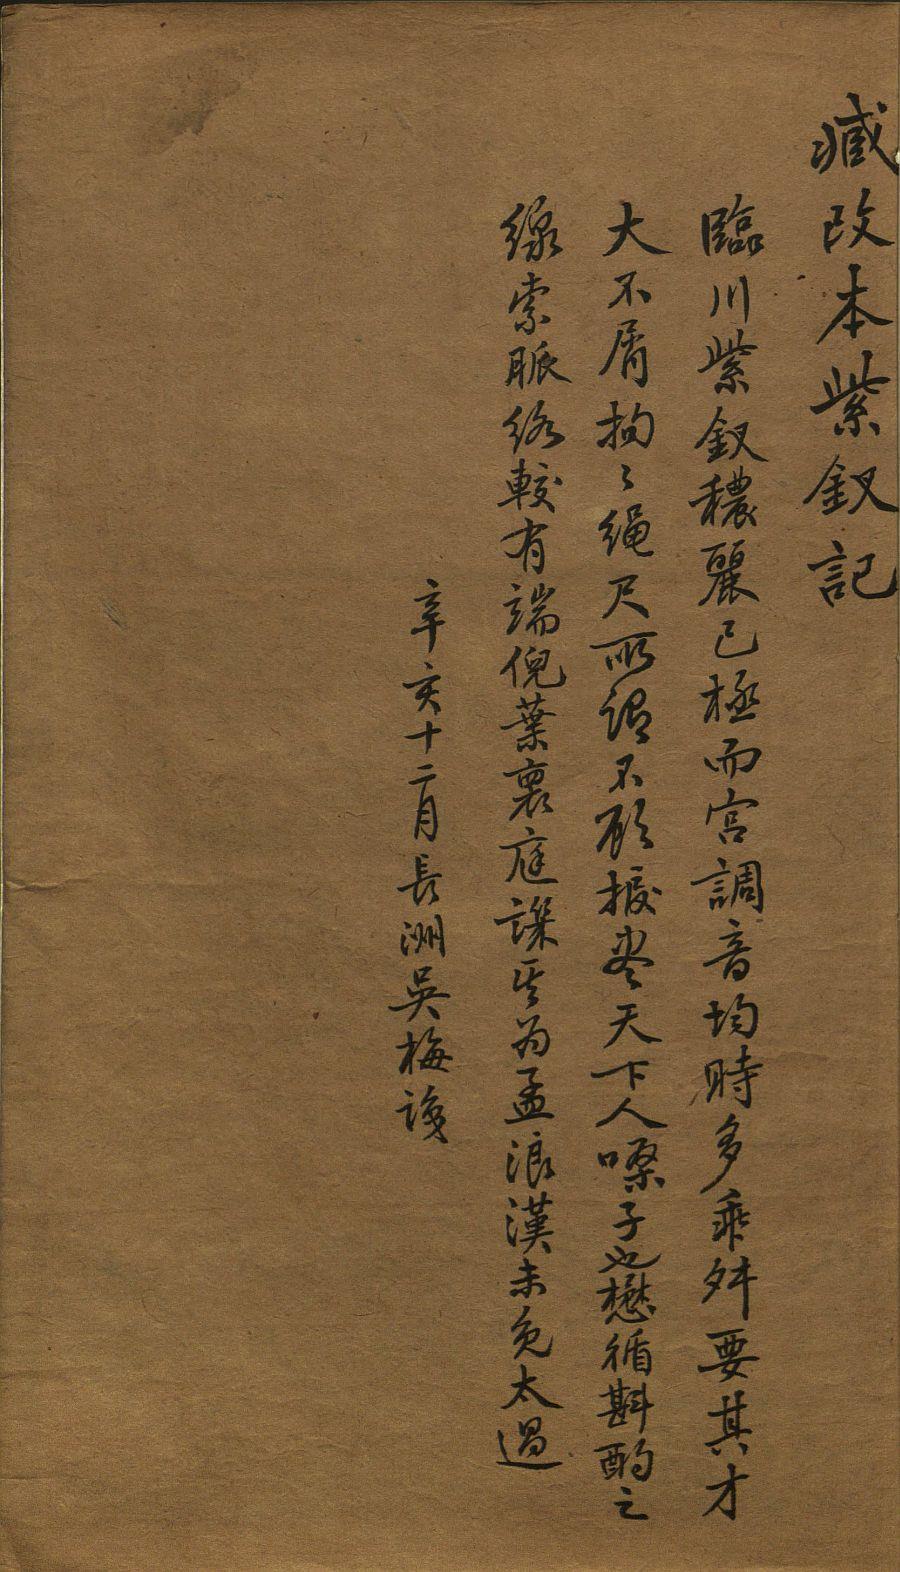 臧改本紫釵記
臨川紫釵穠麗已極而宫調音均時多乖舛要其才
大不屑拘〻繩尺所謂不顧捩盡天下人嗓子也懋循斟酌之
線索脈络較有端倪葉裏庭譏其为孟浪漢未免太過
辛亥十二月長洲吴梅識